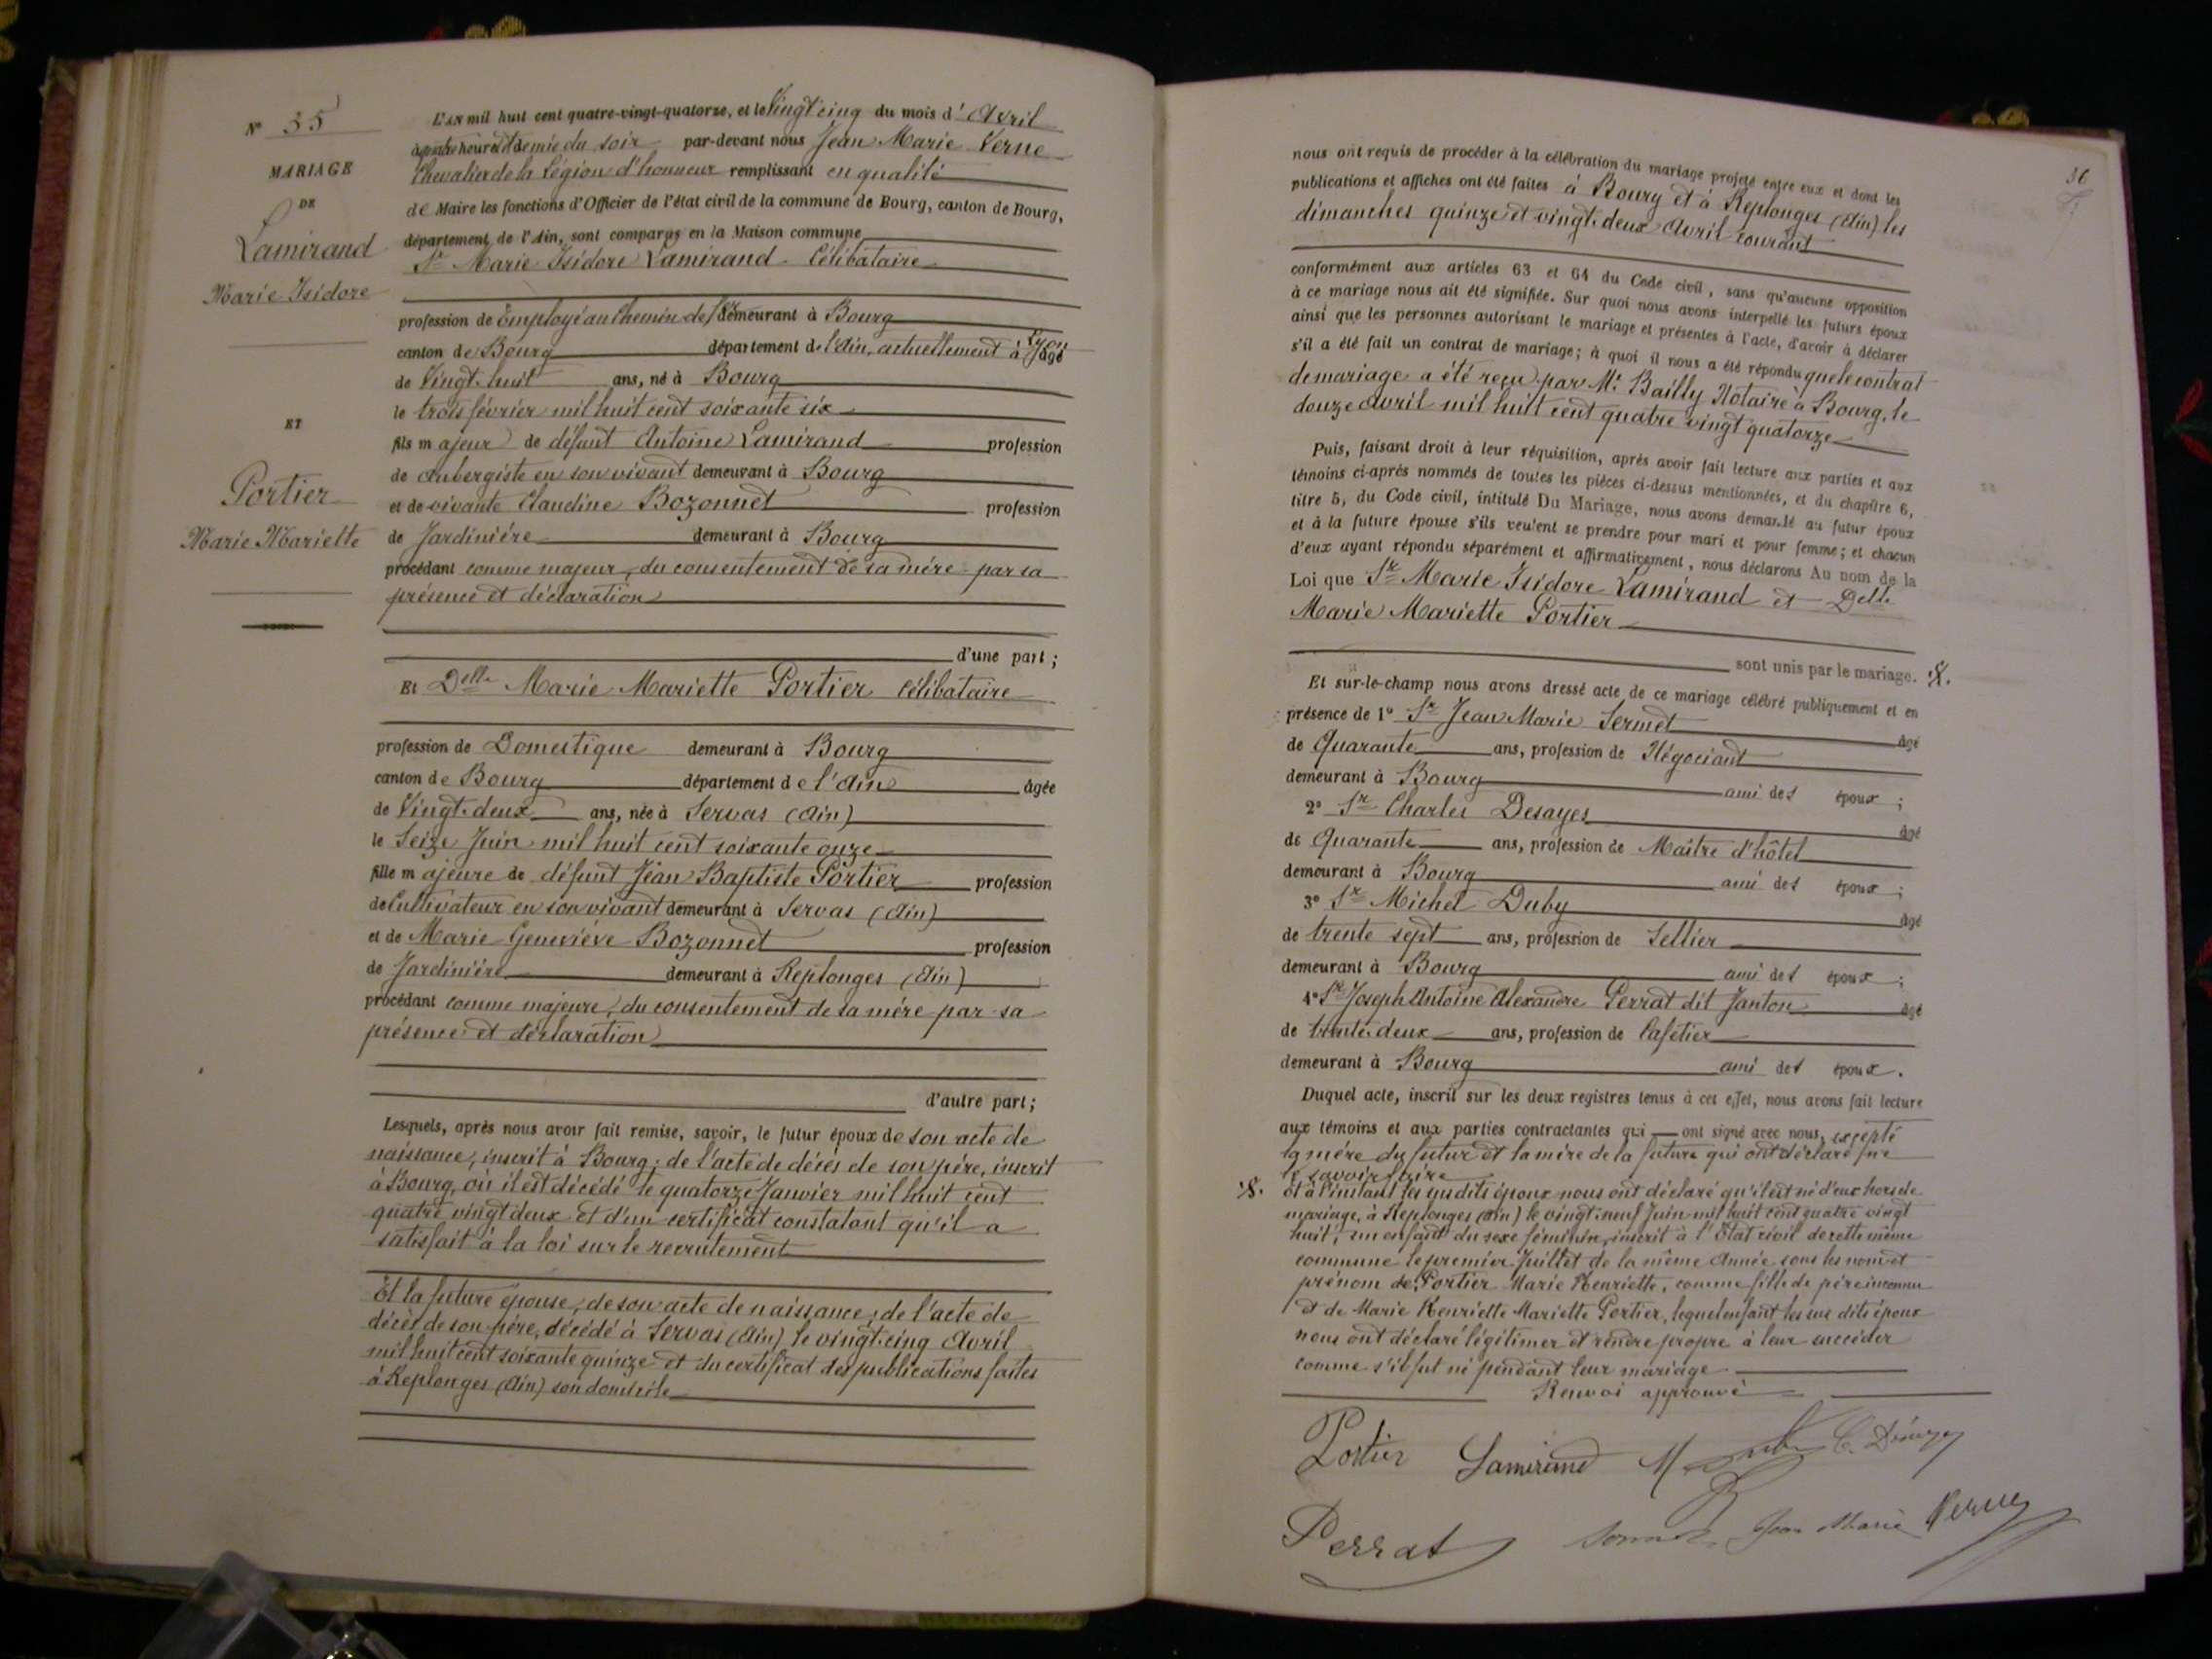 N° 35
MARIAGE
DE
Lamirand
Marie Isidore
ET
Portier
Marie Mariette
L'AN mil huit cent quatre-vingt-quatorze, et le Vingt cinq du mois d'Avril
heure et demie du soir par-devant nous Jean Marie Verne
Chevalier de la Légion d'honneur remplissant en qualité
de Maire les fonctions d'Officier de l'état civil de la commune de Bourg, canton de Bourg,
département de l'Ain, sont comparus en la Maison commune
Sr Marie Isidore Lamirand Célibataire
profession de Employé au Chemin de fer demeurant à Bourg
canton de Bourg département de l'Ain, actuellement à Lyon âgé
de Vingt-huit ans, né à Bourg
le trois février mil huit cent soixante six
fils majeur de défunt Antoine Lamirand profession
de Aubergiste en son vivant demeurant à Bourg
et de vivante Claudine Bozonnet profession
de Jardinière demeurant à Bourg
procédant comme majeur, du consentement de sa mère par sa
présence et déclaration
d'une part;
Et Delle Marie Mariette Portier Célibataire
profession de Domestique demeurant à Bourg
canton de Bourg département de l'Ain âgée
de Vingt-deux ans, née à Servas (Ain)
le Seize Juin mil huit cent soixante onze
fille majeure de défunt Jean Baptiste Portier profession
de Cultivateur en son vivant demeurant à Servas (Ain)
et de Marie Geneviève Bozonnet profession
de Jardinière demeurant à Replonges (Ain)
procédant comme majeure, du consentement de sa mère par sa
présence et déclaration
d'autre part;
Lesquels, après nous avoir fait remise, savoir, le futur époux de son acte de
naissance, inscrit à Bourg; de l'acte de décès de son père, inscrit
à Bourg, où il est décédé le quatorze Janvier mil huit cent
quatre vingt deux et d'un certificat constatant qu'il a
satisfait à la loi sur le recrutement
Et la future épouse, de son acte de naissance, de l'acte de
décès de son père, décédé à Servas (Ain) le vingt-cinq Avril
mil huit cent soixante quinze et du certificat des publications faites
à Replonges (Ain) son domicile
36
nous ont requis de procéder à la célébration du mariage projeté entre eux et dont les
publications et affiches ont été faites à Bourg et à Replonges (Ain) les
dimanches quinze et vingt-deux Avril courant
conformément aux articles 63 et 64 du Code civil, sans qu'aucune opposition
à ce mariage nous ait été signifiée. Sur quoi nous avons interpellé les futurs époux
ainsi que les personnes autorisant le mariage et présentes à l'acte, d'avoir à déclarer
s'il a été fait un contrat de mariage; à quoi il nous a été répondu que le contrat
de mariage a été reçu par Me Bailly Notaire à Bourg, le
douze Avril mil huit cent quatre vingt quatorze
Puis, faisant droit à leur réquisition, après avoir fait lecture aux parties et aux
témoins ci-après nommés de toutes les pièces ci-dessus mentionnées, et du chapitre 6,
titre 5, du Code civil, intitulé Du Mariage, nous avons demandé au futur époux
et à la future épouse s'ils veulent se prendre pour mari et pour femme; et chacun
d'eux ayant répondu séparément et affirmativement, nous déclarons Au nom de la
Loi que Sr Marie Isidore Lamirand et Delle
Marie Mariette Portier
sont unis par le mariage.
Et sur-le-champ nous avons dressé acte de ce mariage célébré publiquement et en
présence de 1° Sr Jean Marie Sermet âgé
de Quarante ans, profession de Négociant
demeurant à Bourg ami des époux;
2° Sr Charles Desayes âgé
de Quarante ans, profession de Maître d'hôtel
demeurant à Bourg ami des époux;
3° Sr Michel Duby âgé
de trente sept ans, profession de Sellier
demeurant à Bourg ami des époux;
4° Sr Joseph Antoine Alexandre Perrat dit Janton âgé
de trente-deux ans, profession de Cafetier
demeurant à Bourg ami des époux.
Duquel acte, inscrit sur les deux registres tenus à cet effet, nous avons fait lecture
aux témoins et aux parties contractantes qui ont signé avec nous, excepté
la mère du futur et la mère de la future qui ont déclaré ne
le savoir faire
Et à l'instant les susdits époux nous ont déclaré qu'il est né d'eux hors de
mariage, à Replonges (Ain) le vingt-neuf Juin mil huit cent quatre vingt
huit, un enfant du sexe féminin, inscrit à l'Etat civil de cette même
commune le premier Juillet de la même Année sous les nom et
prénom de Portier Marie Henriette, comme fille de père inconnu
et de Marie Henriette Mariette Portier, lequel enfant les sus dits époux
nous ont déclaré légitimer et rendre propre à leur succéder
comme s'il fut né pendant leur mariage
Renvoi approuvé
Portier Lamirand
Perrat Jean Marie Verne